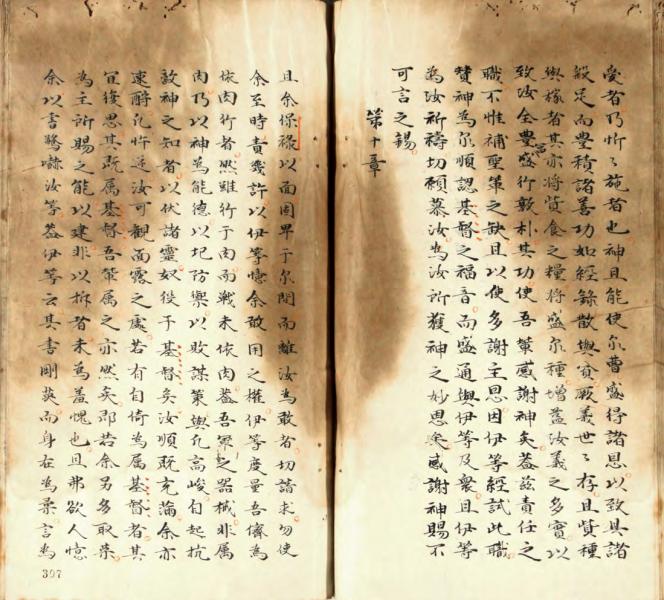 愛者乃忻忻施者也神且能使尔曹盛得諸恩以致具諸
般足而豊積諸善功如經錄散與貧厥義世世存且賞種
與稼者其亦將賞食之糧將盛尔種增益汝義之多實以
致汝全豊盛行敦朴其功使吾輩感謝神矣蓋兹責任之
職不惟補聖輩之缺且以使多謝主恩因伊等經試此職
賛神為尔順認基督之福音而盛通與伊等及衆且伊等
為汝祈禱切願慕汝為汝所獲神之妙恩矣感謝神賜不
可言之錫
第十章
且余保祿以面固卑于尔間而離汝為敢者切請求勿使
余至時責幾許以伊等憶余敢用之權伊等度量吾儕為
依肉行者然雖行于肉而戰未依肉蓋吾軍之器械非属
肉乃以神為能德以圮防禦以敗謀策與凡高峻自起抗
敵神之知者以伏諸靈奴役于基督矣汝順既充滿余亦
速酧凡忤逆汝可觀面露之處若有自倚為属基督者其
宜復思其既属基督吾輩属之亦然矣即若余另多取榮
為主所賜之能以建非以拆者未為羞愧也且弗欲人憶
余以書驚嚇汝等蓋伊等云其書剛英而身在為柔言為
307